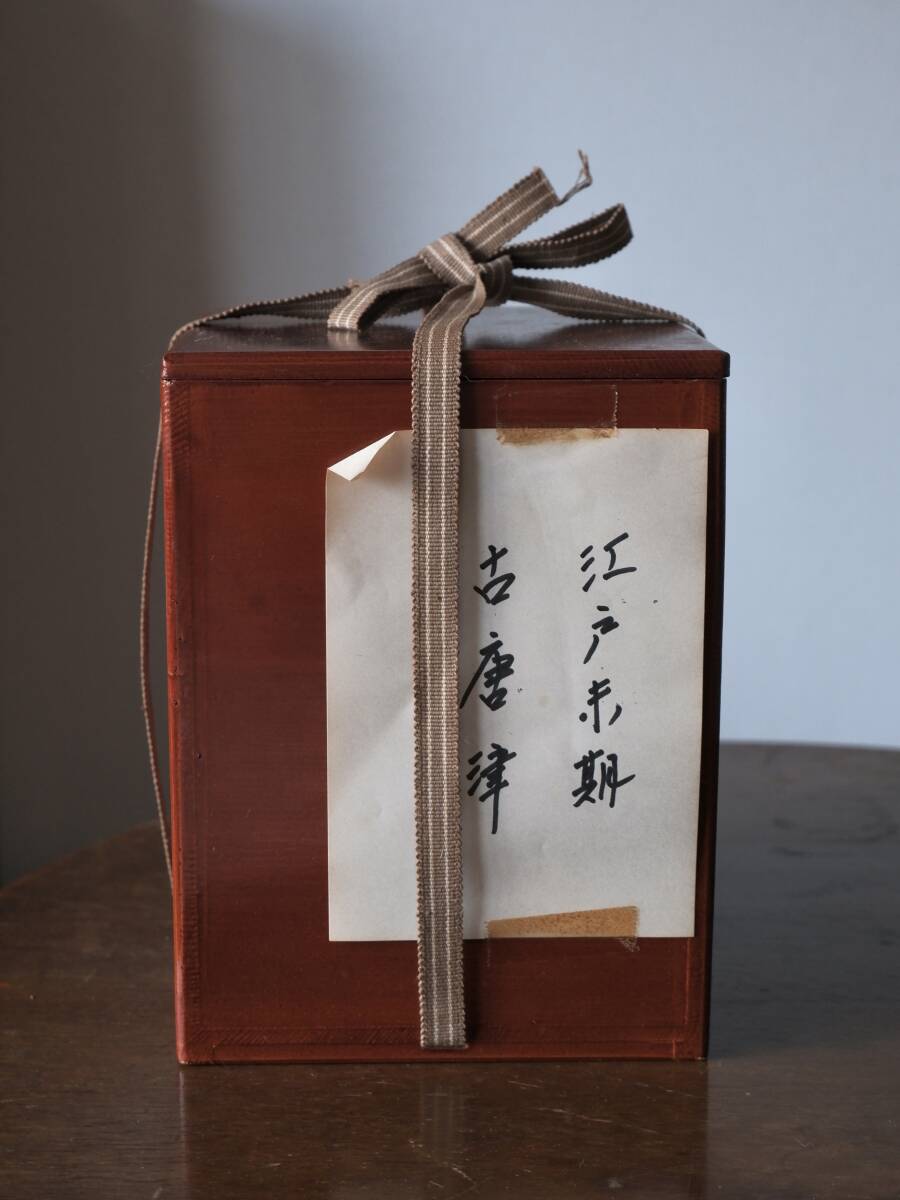 江戸末期
古唐津